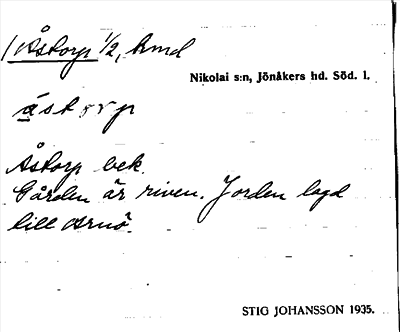 / Åstorp 1/2, kmd
Nikolai s:n, Jönåkers hd. Söd. l.
åstorp
Åstorp bek.
Gården är riven. Jorden lagd
till Arnö.
STIG JOHANSSON 1935.